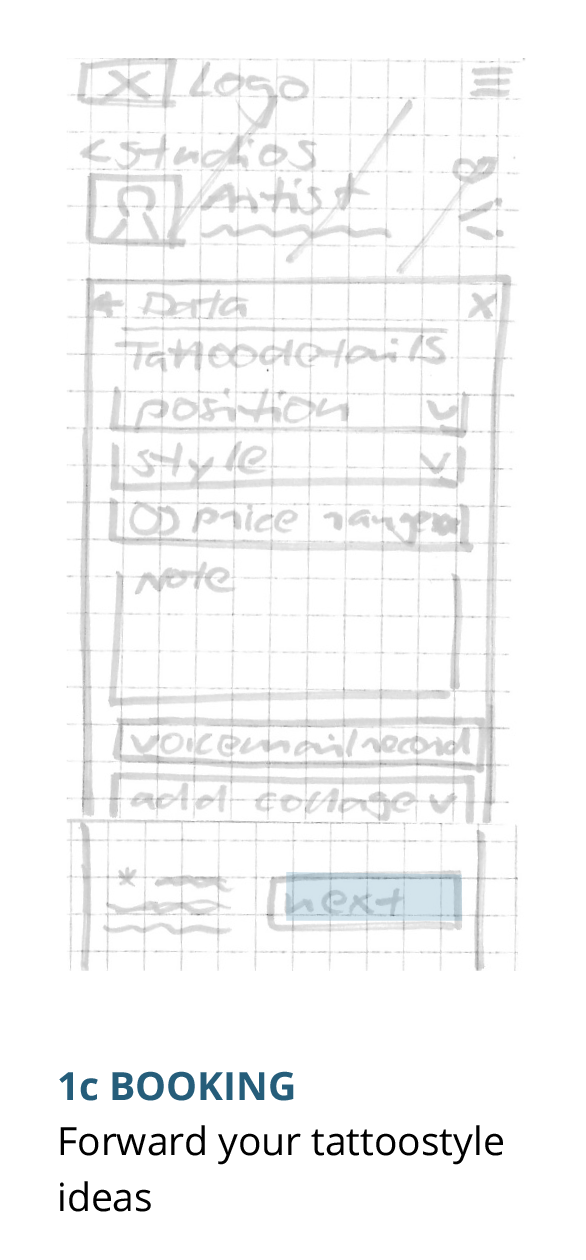 Logo
< studios
Artist
← Data X
Tattoodetails
position
style
price range
Note
voicemail record
add collage
*
next
1c BOOKING
Forward your tattoostyle
ideas